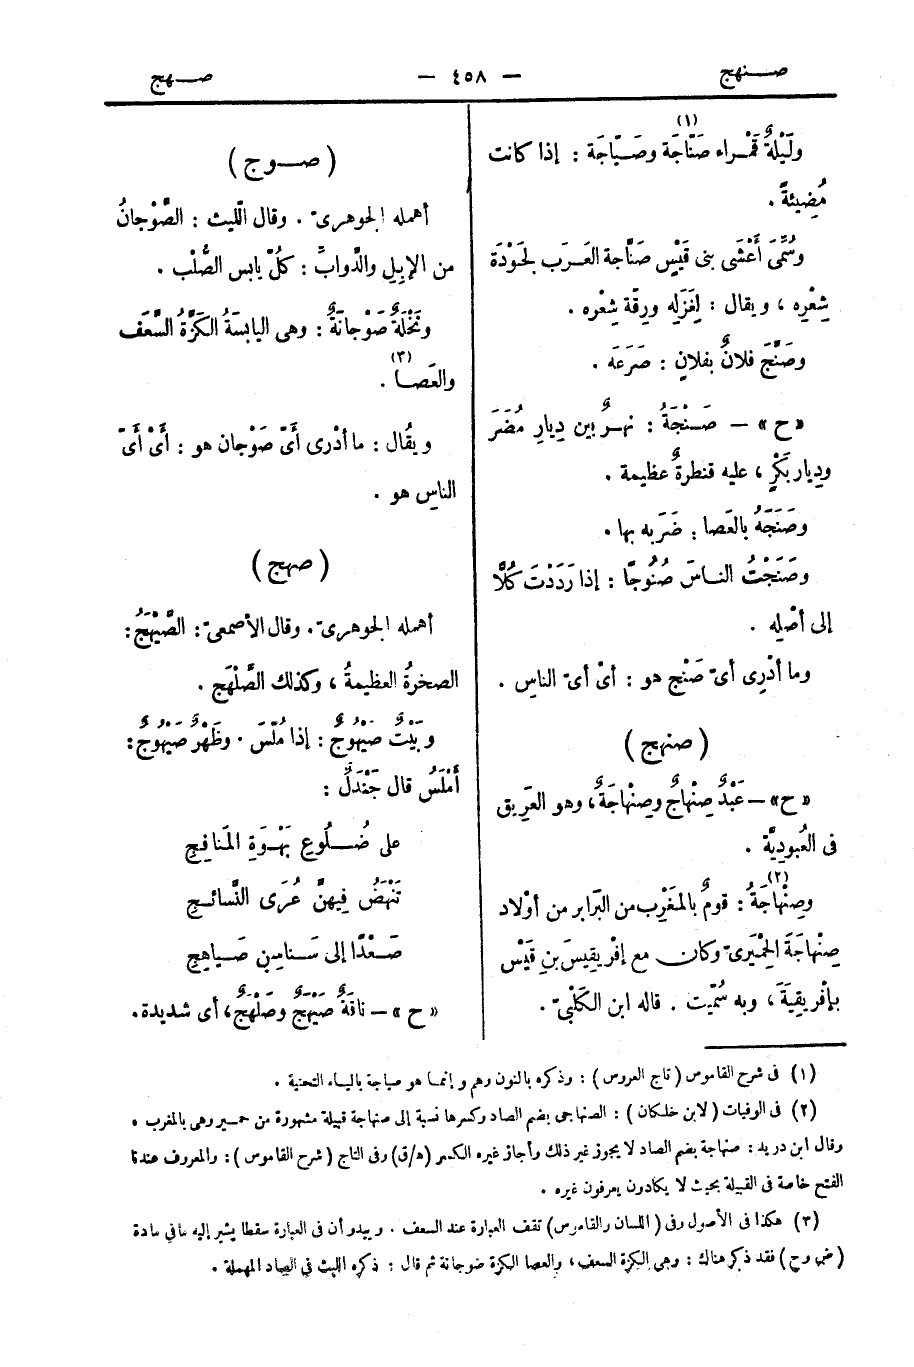 صـنهج
— ٤٥٨ —
صـهج
(١)
ولَيْلَةٌ قَمْراء صَنّاجَة وصَيّاجَة : إذا كانت
مُضِيئةً .
وسُمِّىَ أَعْشَى بنى قَيْس صَنّاجة العَرَب لجَوْدَة
شِعْرِه ، ويقال : لِغَزَلِه ورِقّة شِعْره .
وصَنَّجَ فلانٌ بفلانٍ : صَرَعَه .
«ح» — صَنْجَةُ : نهرٌ بين دِيارِ مُضَرَ
ودِيار بَكْرٍ ، عليه قنطرةٌ عظيمة .
وصَنَجَهُ بالعَصا : ضَرَبه بها .
وصَنَجْتُ الناسَ صُنُوجًا : إذا رَدَدْتَ كُلًّا
إلى أصْلِه .
وما أدْرِى أىّ صَنْجٍ هو : أىْ أىّ الناسِ .
(صنهج)
«ح» — عَبْدٌ صِنْهاجٌ وصِنْهاجَةٌ ، وهو العَرِيق
فى العُبودِيَّة .
(٢)
وصِنْهاجَةُ : قومٌ بالمَغْرِب من البَرابر من أوْلاد
صِنْهاجَةَ الحِمْيَرىّ وكان مع إفْرِيقِيسَ بنِ قَيْس
بإفْرِيقِيَةَ ، وبه سُمِّيت . قاله ابن الكَلْبىّ .
(صـوج)
أهمله الجوهرىّ . وقال الّليث : الصَّوْجانُ
من الإبِلِ والدَّوابِّ : كلّ يابس الصُّلْب .
ونَخْلَةٌ صَوْجانَةٌ : وهى اليابسَةُ الكَزَّةُ السَّعَف
(٣)
والعَصـا .
ويُقال : ما أدْرى أىّ صَوْجان هو : أىْ أىّ
الناسِ هو .
(صهج)
أهمله الجوهرىّ . وقال الأصمعىّ : الصَّيْهَجُ :
الصخرةُ العظيمةُ ، وكذلك الصَّلْهَج .
وبَيْتٌ صَيْهُوجٌ : إذا مُلِّسَ . وظَهْرٌ صَيْهُوجٌ :
أَمْلَسُ قال جَنْدَلٌ :
على ضُـلُوعٍ بَهْـوَةِ المَنافِـجِ
تَنْهَضُ فِيهنَّ عُرَى النَّسائـجِ
صَـعْدًا إلى سَـناسِنٍ صَـياهِجِ
«ح» — ناقَةٌ صَيْهَجٌ وصَلْهَجٌ ، أى شديدة .
(١) فى شرح القاموس (تاج العروس) : وذكره بالنون وهم وإنمـا هو صياجة باليـاء التحتية .
(٢) فى الوفيات (لابن خلكان) : الصنهاجى بضم الصاد وكسرها نسبة إلى صنهاجة قبيلة مشهورة من حمـير وهى بالمغرب .
وقال ابن دريد : صنهاجة بضم الصاد لا يجوز غير ذلك وأجاز غيره الكسر (ﻫ/ق) وفى التاج (شرح القاموس) : والمعروف عندنا
الفتح خاصة فى القبيلة بحيث لا يكادون يعرفون غيره .
(٣) هكذا فى الأصول وفى (اللسان والقاموس) تقف العبارة عند السعف . ويبدو أن فى العبارة سقطا يشير إليه ما فى مادة
(ض وج) فقد ذكر هناك : وهى الكزة السعف ، والعصا الكزة ضوجانة ثم قال : ذكره الليث فى الصاد المهملة .